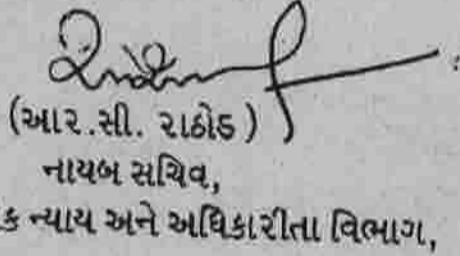 (આર.સી. રાઠોડ)
નાયબ સચિવ,
ક ન્યાય અને અધિકારીતા વિભાગ,